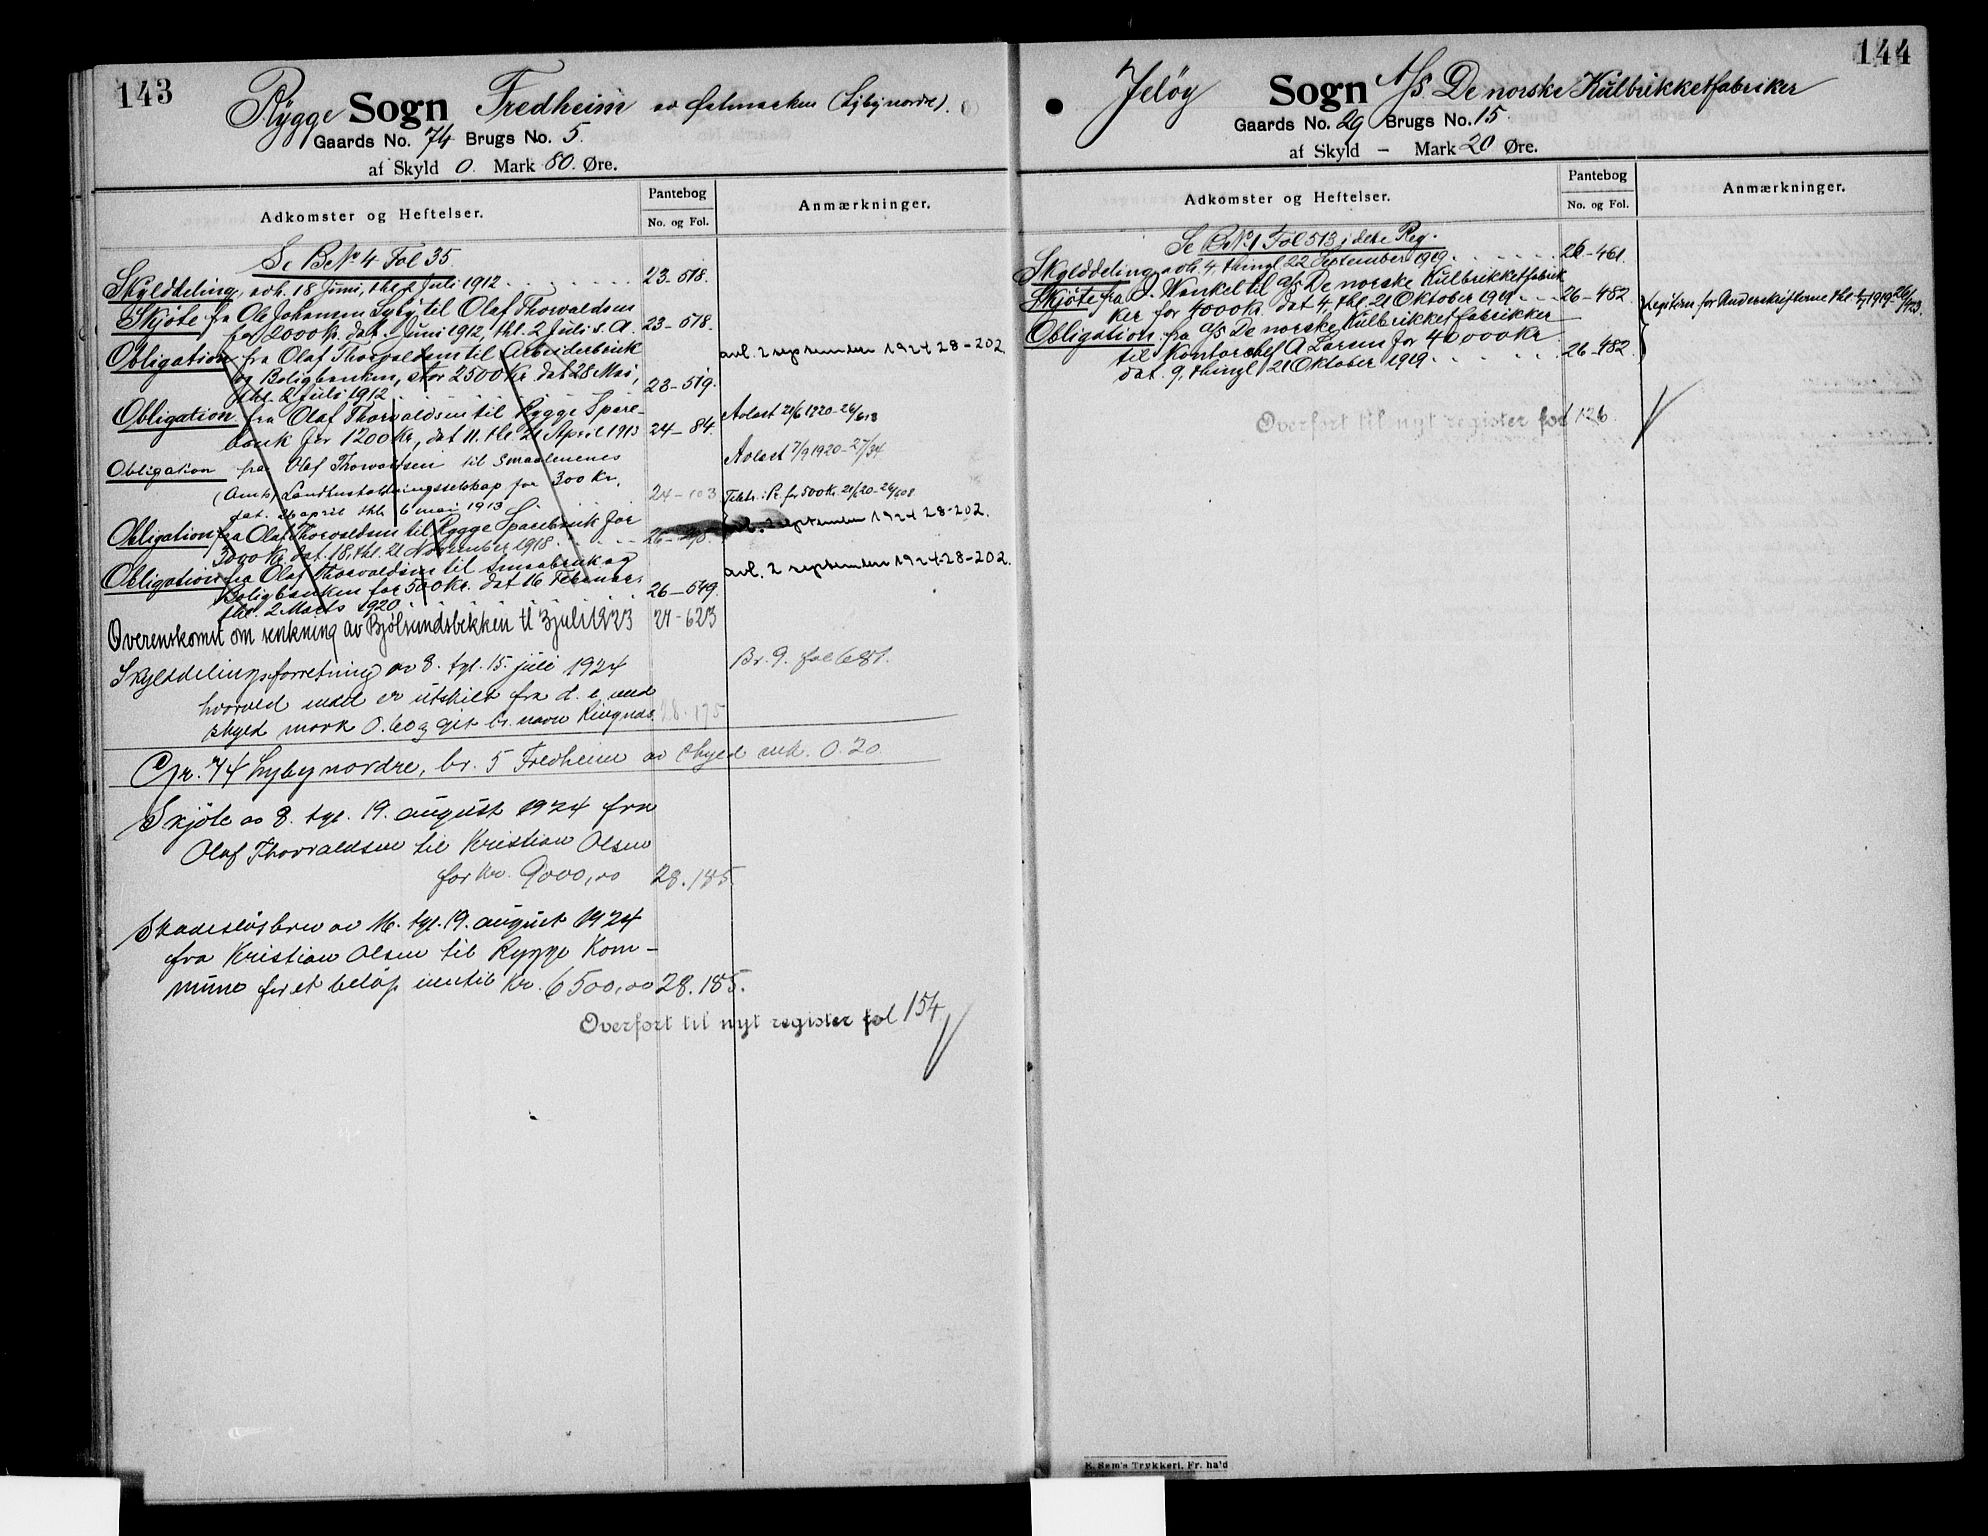 143
Rygge Sogn Fredheim av (Lyby nordre).
Gaards No. 74 Brugs No. 5.
af Skyld 0. Mark 80. Øre.
Adkomster og Heftelser.
Pantebog
No. og Fol.
Anmærkninger.
Se BNo 4 Fol 35
Skylddeling, avh. 18 Juni, thl. 2 Juli 1912 23-518.
Skjøte fra Ole Johansen Lyby til Olaf Thorvaldsen
for 2000 Kr. dat. Juni 1912, thl. 2 Juli s. A. 23-518.
Obligation fra Olaf Thorvaldsen til Arbeiderbruk
og Boligbanken, stor 2500 Kr. dat 28 Mai, avl. 2 september 1924 28-202
thl. 2 Juli 1912 23-519.
Obligation fra Olaf Thorvaldsen til Rygge Spare- Avlæst 21/6 1920-26/613
bank for 1200 Kr, dat 11. thl. 21 April 1913 24-84.
Obligation fra Olaf Thorvaldsen til Smaalenenes Avlæst 7/9 1920-27/34
(Amts) Landhusholdningsselskap for 300 Kr.
dat. 26 april thl. 6 mai 1913 24-103
Obligation fra Olaf Thorvaldsen til Rygge Sparebank for avl. 2 september 1924 28-202.
3000 Kr. dat. 18, thl. 21 November 1918
Obligation fra Olaf Thorvaldsen til Smaabruk og
Boligbanken for 500 Kr. dat 16 Februar, avl. 2 september 1924-28-202.
thl. 2 Marts 1920 26-549
Overenskomst om senkning av Bjølsundsbekken tl 3 juli 1923 27-623
Skylddelingsforretning av 8. tgl. 15. juli 1924 Br. 9. fol 681.
hvorved endel er utskilt fra d. e. med
skyld mark 0.60 og git br. navn 28.175
Gr. 74 Lyby nordre, br. 5 Fredheim av skyld mk. 0.20
Skjøte av 8. tgl. 19. august 1924 fra
Olaf Thorvaldsen til Kristian Olsen
for kr. 9000,00 28.185.
Skadesløsbrev av 16. tgl. 19. august 1924
fra Kristian Olsen til Rygge Kom-
mune for et beløp inntil kr. 6500,00 28.185.
Overført til nyt register fol 154.
144
Jeløy Sogn A/S. De norske Kulbrikketfabriker
Gaards No. 29 Brugs No. 15
af Skyld - Mark 20 Øre.
Adkomster og Heftelser.
Pantebog
No. og Fol.
Anmærkninger.
Se BNo 1 Fol 513 i dette Reg.
Skylddeling avh. 4 thingl 22 September 1919 26-461.
Skjøte fra D. Wankel til A/S De norske Kulbrikketfabrik
ker for 4000 Kr. dat 4, thl. 21 Oktober 1919 26-482.
Legitim. for Underskrifterne thl. 1919-26/423.
Obligation fra A/S De norske Kulbrikketfabrikker
til Kontorchef A Larsen for 40000 Kr
dat. 9, thingl 21 Oktober 1919 26-482.
Overført til nyt register fol 126.
E. Sem's Trykkeri, Fr.hald